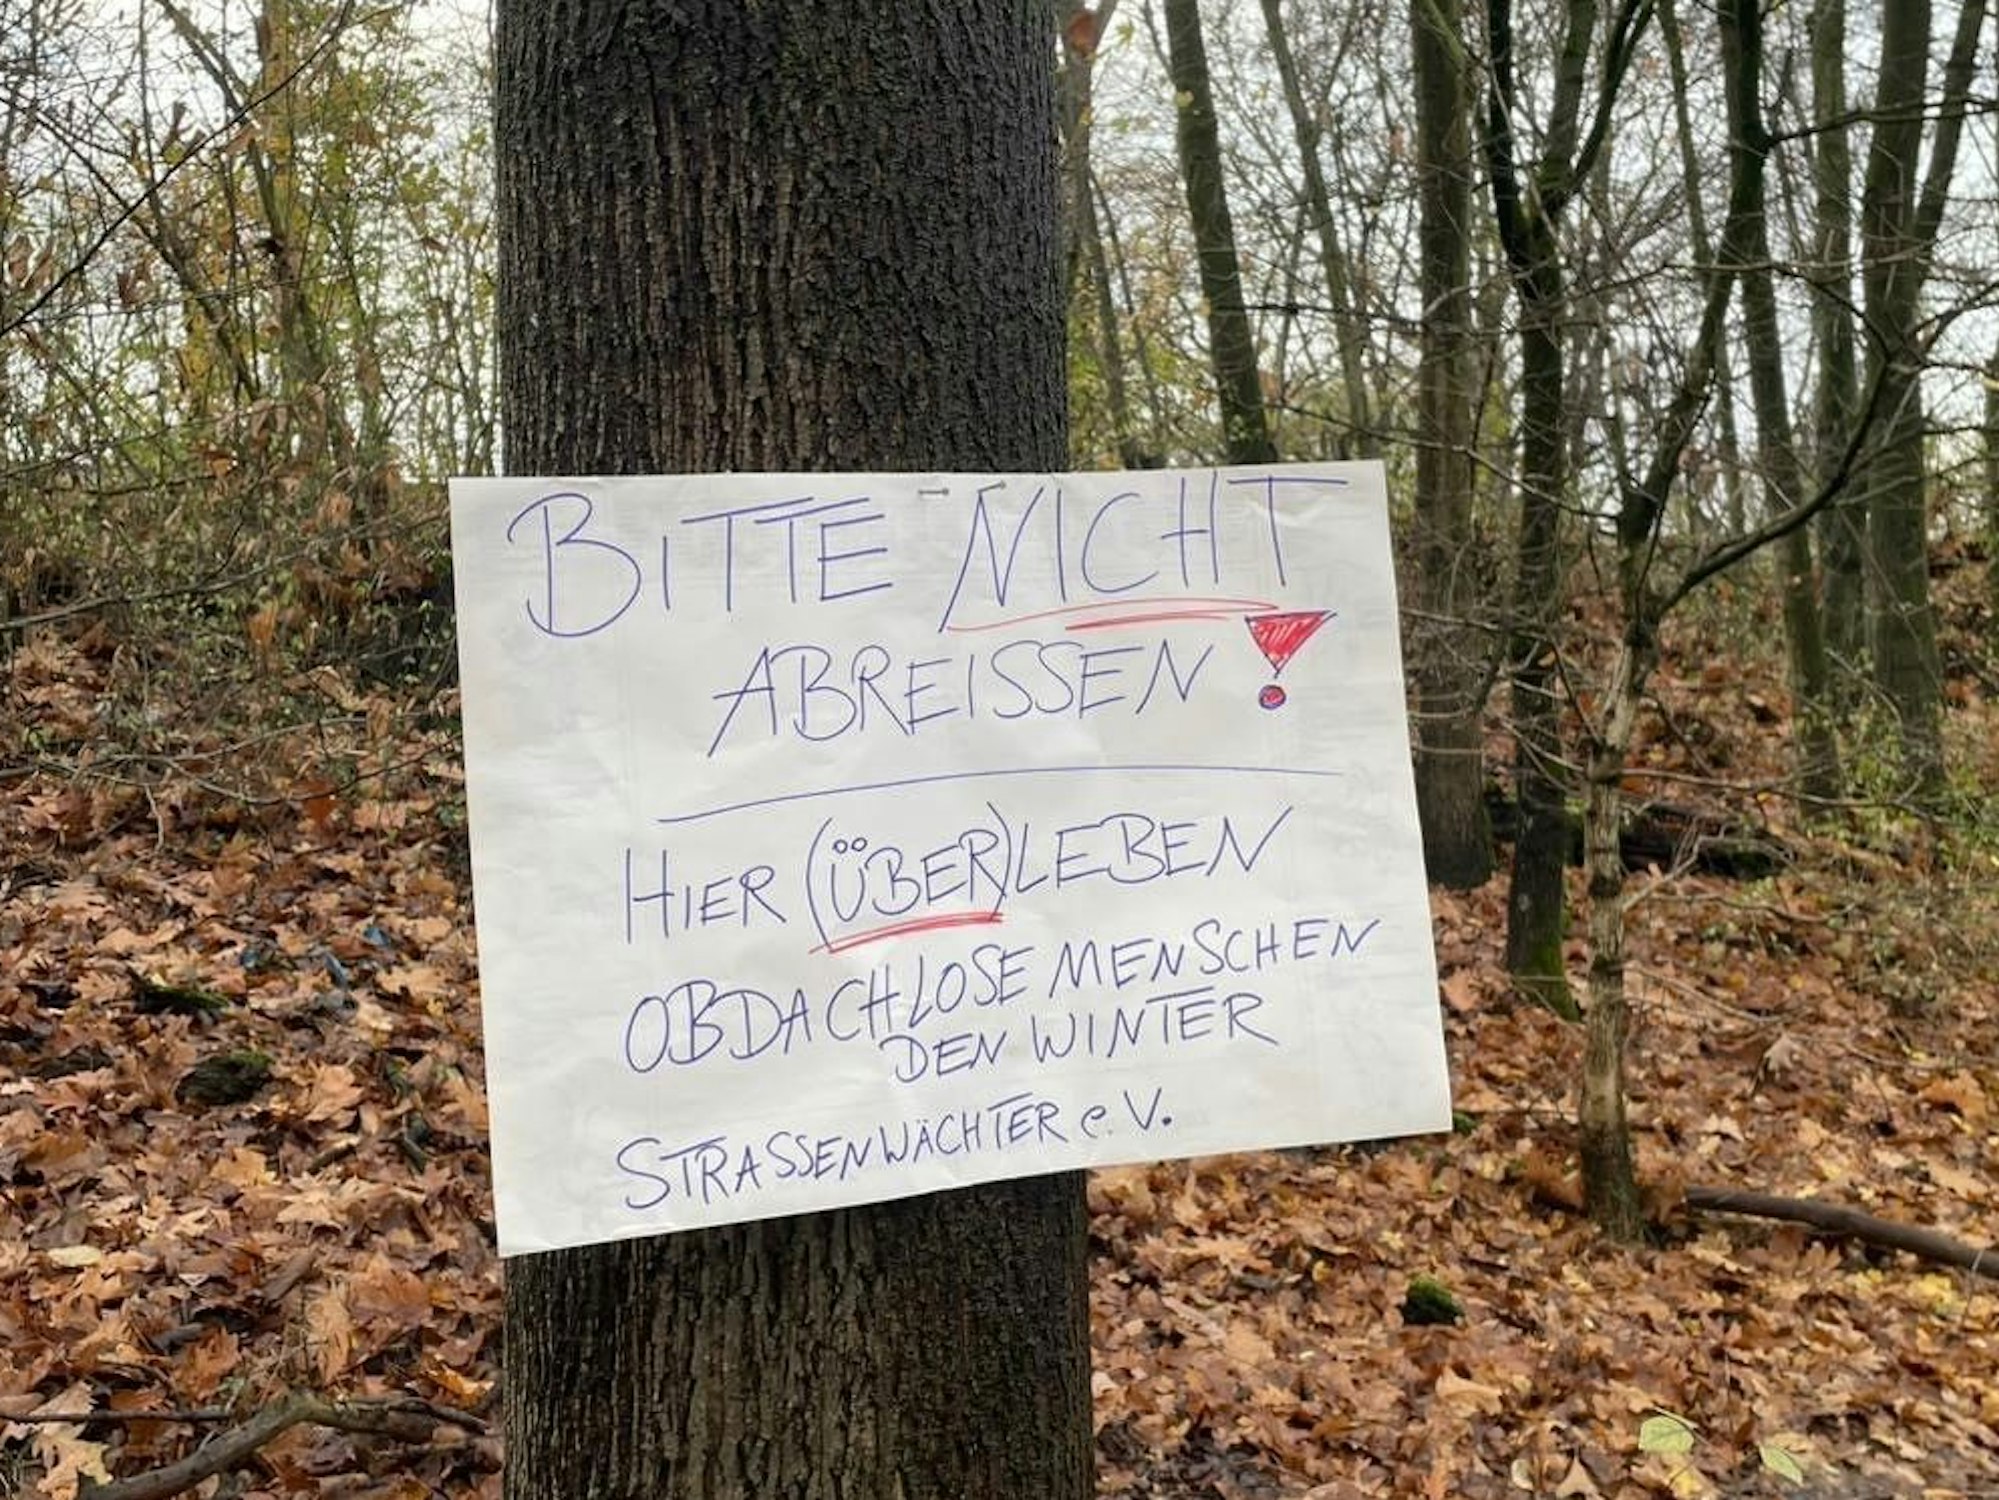 BITTE NICHT
ABREISSEN!
HIER (ÜBER)LEBEN
OBDACHLOSE MENSCHEN
DEN WINTER
STRASSENWÄCHTER e.V.